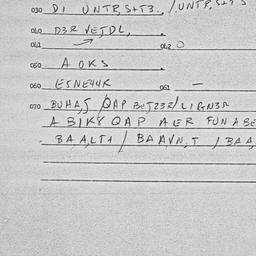 030 DI UNTP, S+T3., / .UNTP,
040 D3R VEJDL,
041 042 O
050 A OKS
060 ESNE44K 061 –
070 BUHA,S QAP BeJ23R/LIBGN3R
A BIKY QAP AER FUN ABE
BAA,LT1 / BAAVN,T / BAA,